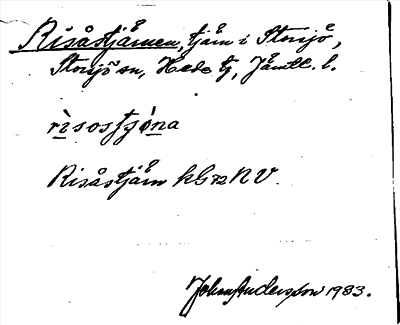 Risåstjärnen, tjärn i Storsjö,
Storsjö sn, Hede tg, Jämtl. l.
rìsostjó̀na
Risåstjärn kb 72 NV.
Johan Andersson 1983.